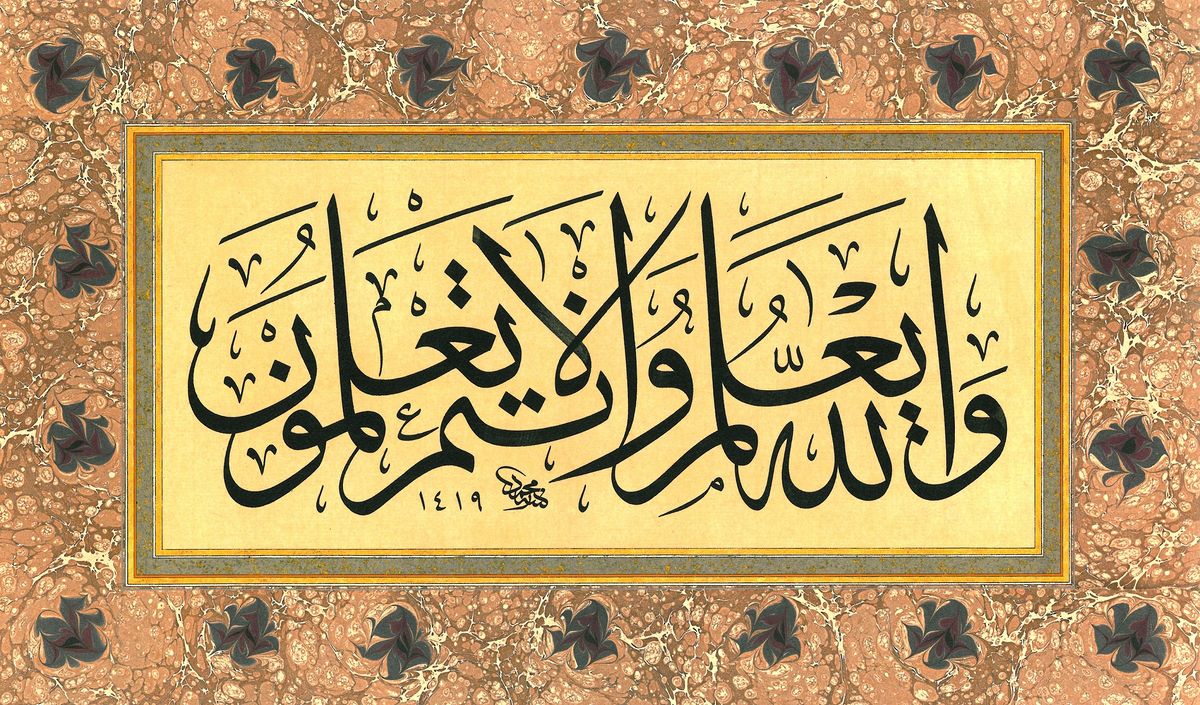 وَاللّٰهُ يَعْلَمُ وَاَنْتُمْ لَا تَعْلَمُونَ
١٤١٩